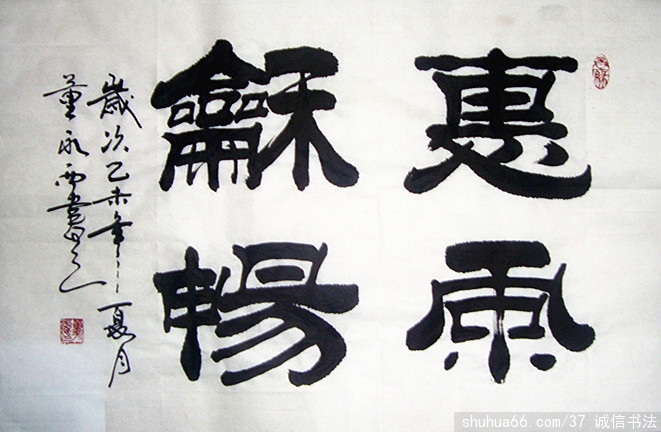 惠風
龢暢
歲次乙未年夏月
董永西書
shuhua66.com/37 诚信书法